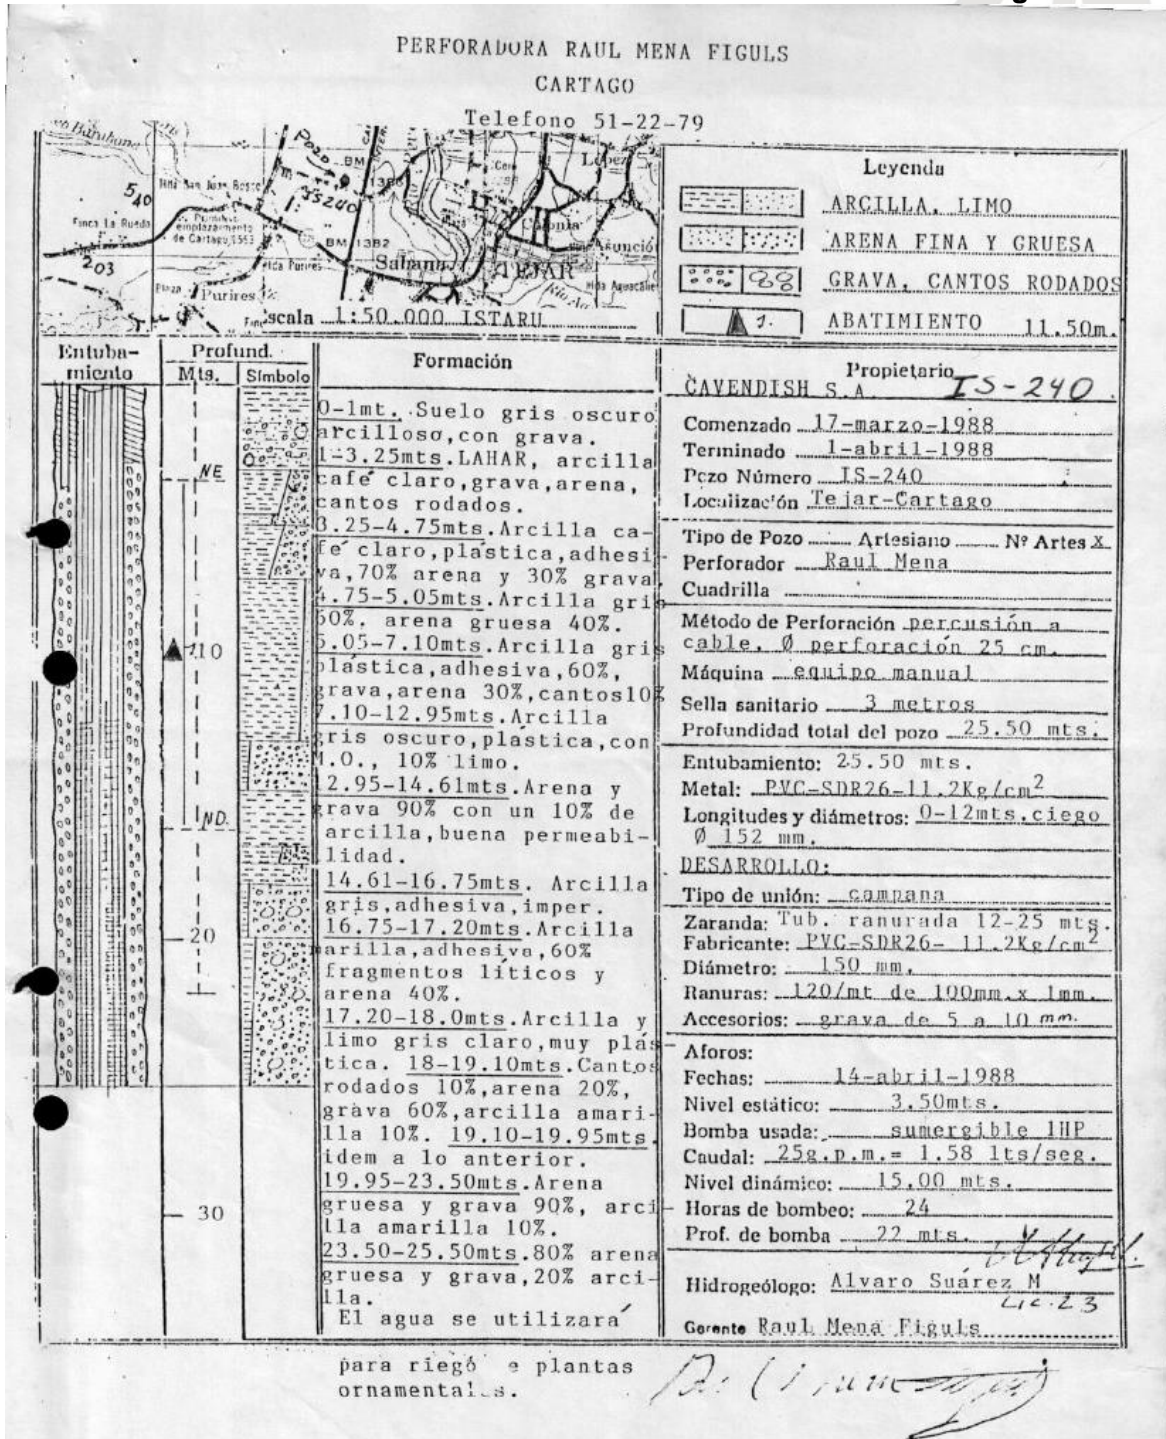 PERFORADORA RAUL MENA FIGULS
CARTAGO
Telefono 51-22-79
540
203
Hda San Juan Bosco
Finca La Rueda
emplazamiento
de Cartago 1563
Pozo
IS240
BM
BM 1382
Hda Purires
Plaza
Purires
Sabana
TEJAR
López
Colonia
Asunción
Hda Aguacaliente
Escala 1:50.000 ISTARU
Leyenda
ARCILLA, LIMO
ARENA FINA Y GRUESA
GRAVA, CANTOS RODADOS
1.
ABATIMIENTO 11.50m.
Entuba-
miento
Profund.
Mts.
Símbolo
Formación
NE
10
ND.
20
30
0-1mt. Suelo gris oscuro
arcilloso,con grava.
1-3.25mts.LAHAR, arcilla
café claro,grava,arena,
cantos rodados.
3.25-4.75mts.Arcilla ca-
fé claro,plástica,adhesi-
va,70% arena y 30% grava.
4.75-5.05mts.Arcilla gris
60%. arena gruesa 40%.
5.05-7.10mts.Arcilla gris
plástica,adhesiva,60%,
grava,arena 30%,cantos10%
7.10-12.95mts.Arcilla
gris oscuro,plástica,con
M.O., 10% limo.
12.95-14.61mts.Arena y
grava 90% con un 10% de
arcilla,buena permeabi-
lidad.
14.61-16.75mts. Arcilla
gris,adhesiva,imper.
16.75-17.20mts.Arcilla
marilla,adhesiva,60%
fragmentos líticos y
arena 40%.
17.20-18.0mts.Arcilla y
limo gris claro,muy plás-
tica. 18-19.10mts.Cantos
rodados 10%,arena 20%,
grava 60%,arcilla amari-
lla 10%. 19.10-19.95mts.
idem a lo anterior.
19.95-23.50mts.Arena
gruesa y grava 90%, arci-
lla amarilla 10%.
23.50-25.50mts.80% arena
gruesa y grava,20% arci-
lla.
El agua se utilizará
para riegó e plantas
ornamentales.
Propietario
CAVENDISH S.A. IS-240
Comenzado 17-marzo-1988
Terminado 1-abril-1988
Pozo Número IS-240
Localización Tejar-Cartago
Tipo de Pozo Artesiano Nº Artes X
Perforador Raul Mena
Cuadrilla
Método de Perforación percusión a
cable. Ø perforación 25 cm.
Máquina equipo manual
Sella sanitario 3 metros
Profundidad total del pozo 25.50 mts.
Entubamiento: 25.50 mts.
Metal: PVC-SDR26-11.2Kg/cm2
Longitudes y diámetros: 0-12mts.ciego
Ø 152 mm.
DESARROLLO:
Tipo de unión: campana
Zaranda: Tub. ranurada 12-25 mts.
Fabricante: PVC-SDR26- 11.2Kg/cm2
Diámetro: 150 mm.
Ranuras: 120/mt de 100mm.x 1mm.
Accesorios: grava de 5 a 10 mm.
Aforos:
Fechas: 14-abril-1988
Nivel estático: 3.50mts.
Bomba usada: sumergible 1HP
Caudal: 25g.p.m.= 1.58 lts/seg.
Nivel dinámico: 15.00 mts.
Horas de bombeo: 24
Prof. de bomba 22 mts.
Hidrogeólogo: Alvaro Suárez M
Lic. 23
Gerente Raul Mena Figuls